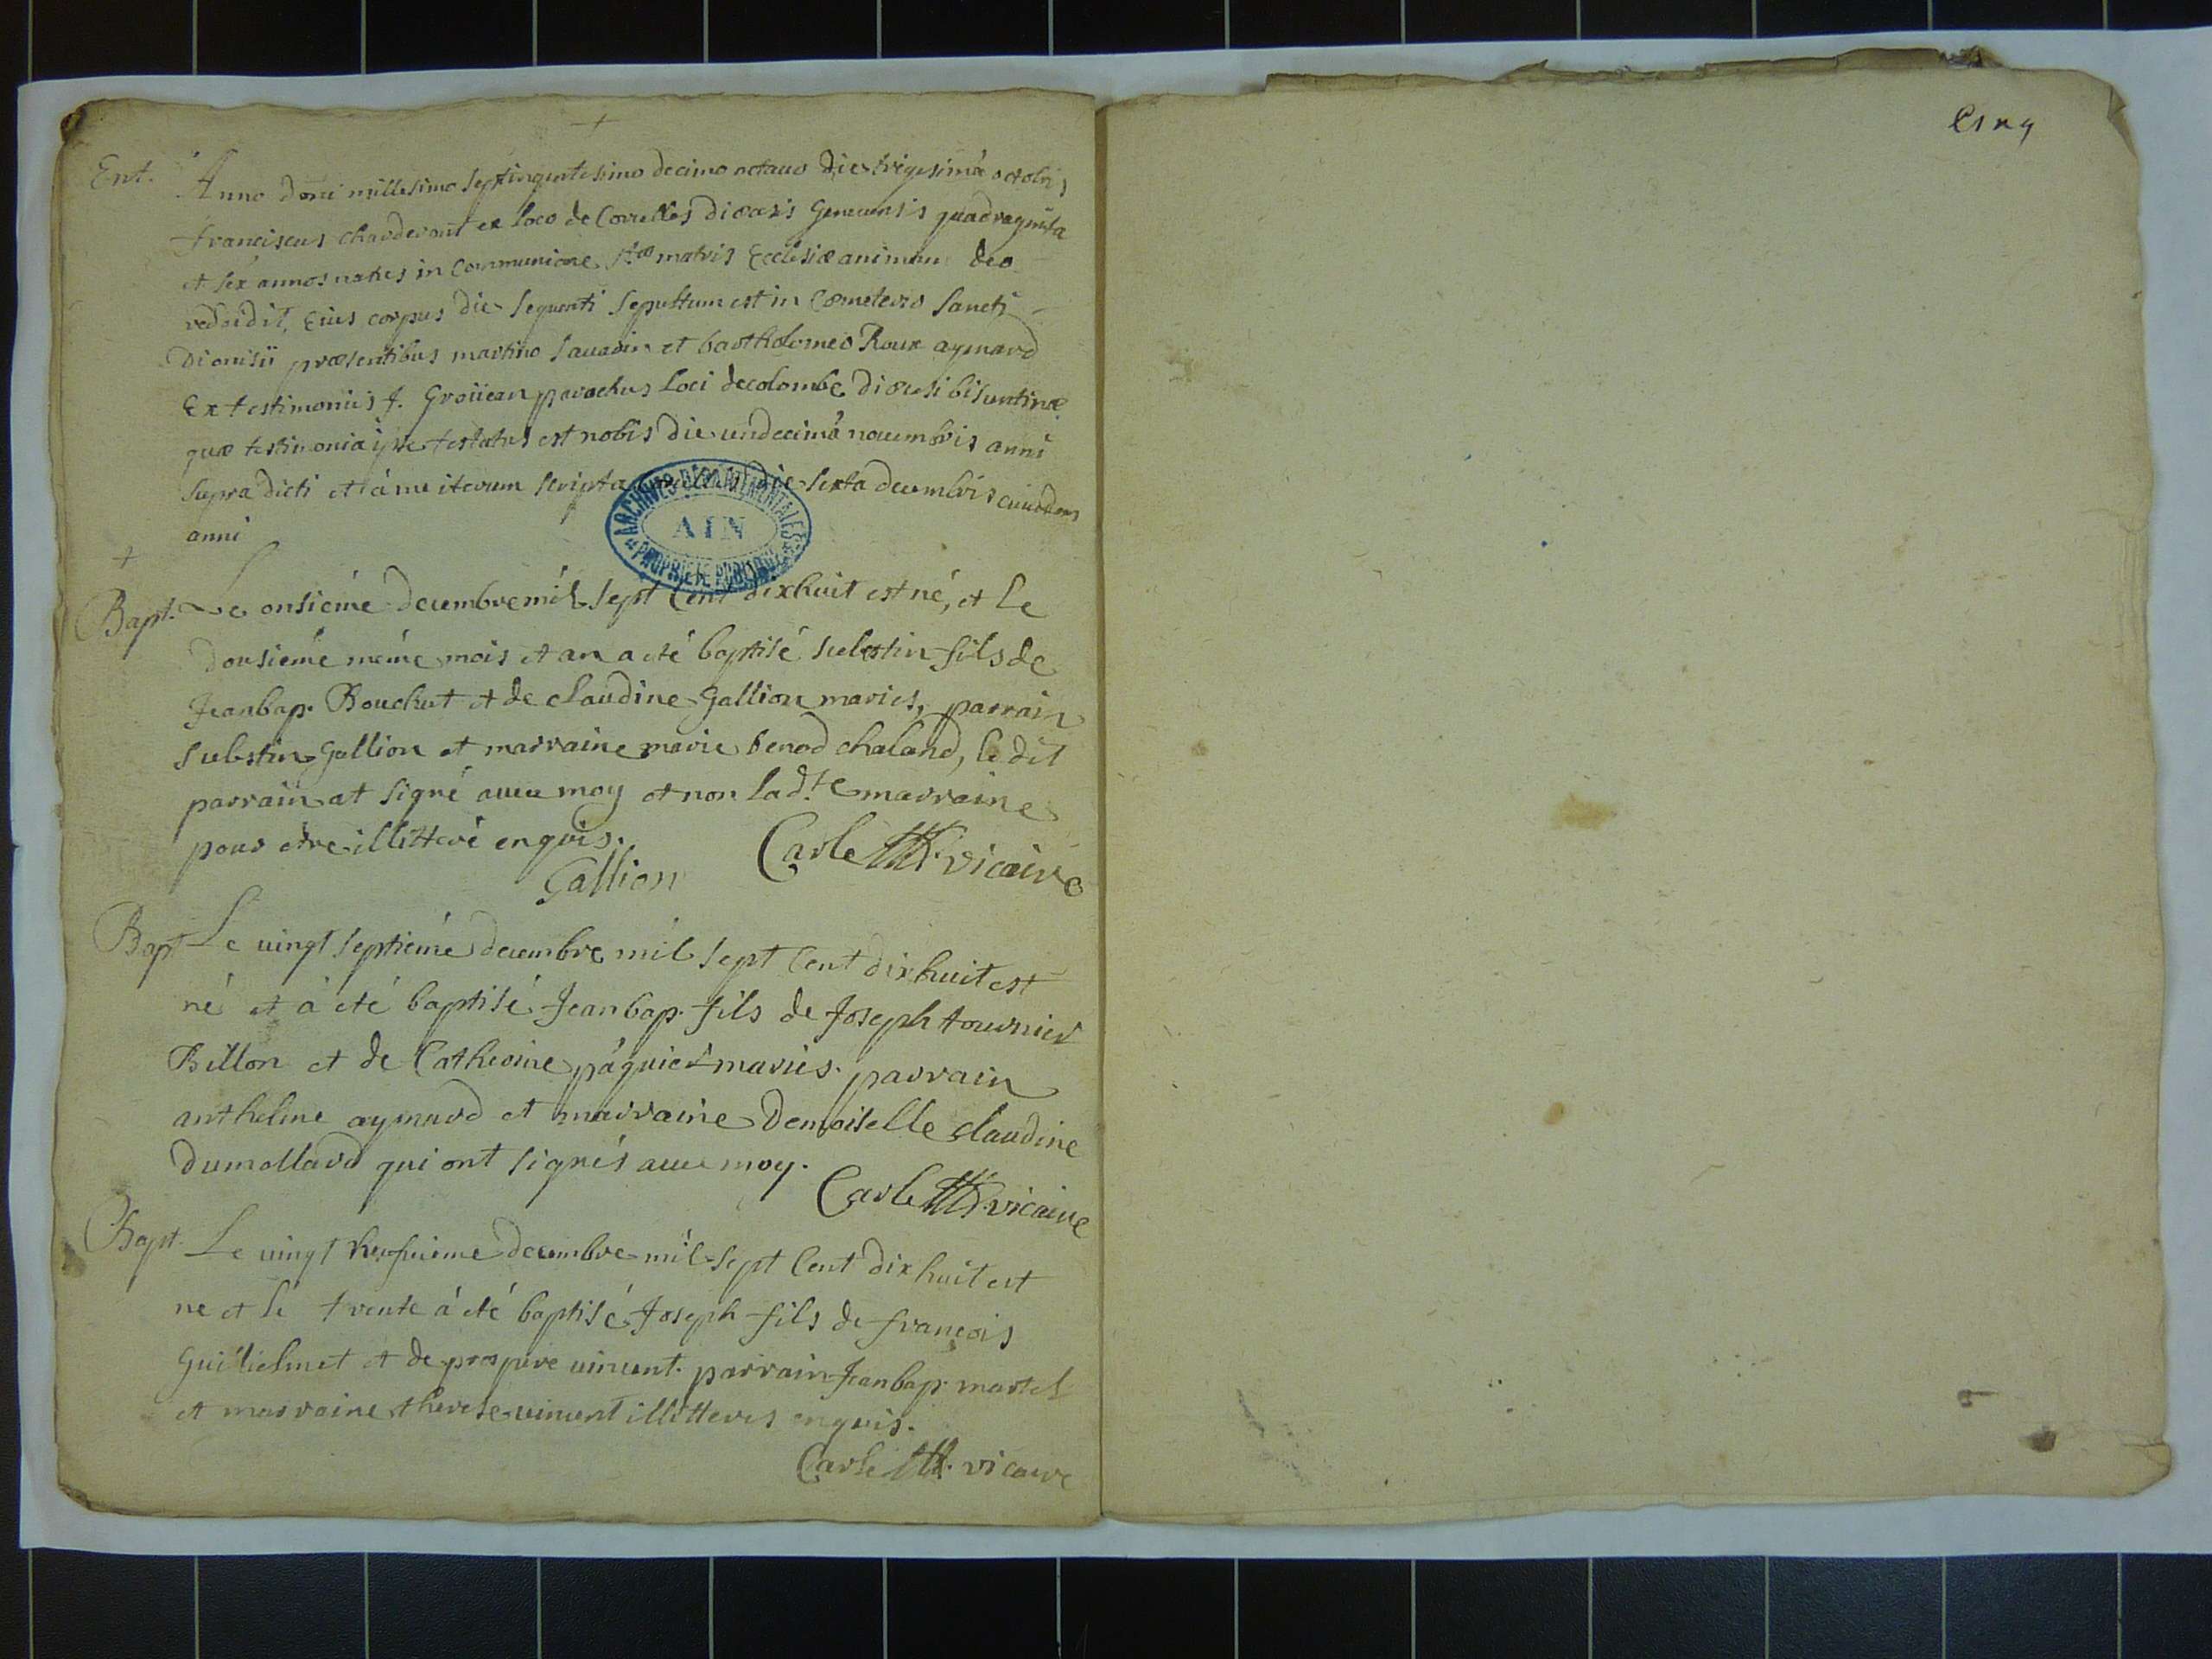 Ent. Anno domi millesimo septingentesimo decimo octauo die trigesimâ octobris
franciscus charderont ex loco de Corcelles dioecesis Geneuensis quadraginta
et sex annos natus in Communione stæ matris Ecclesiæ animam deo
reddidit, Eius corpus die sequenti sepultum est in Cœmeterio sancti
Dionisii præsentibus martino sauarin et bartholomeo Roux aymard
Ex testimoniis J. Groiiean parochus loci decolombe diœcesi bisuntinæ
quæ testimonia testatus est nobis die undecimâ nouembris anni
supra dicti et à me iterum scripta die sexta decembris eiusdem
anni
ARCHIVES DÉPARTEMENTALES
AIN
PROPRIÉTÉ PUBLIQUE
Bapt. Le onsiéme decembre mil sept Cent dixhuit est né, et le
dousiéme méme mois et an a eté baptisé subestin fils de
Jeanbap. Bouchut et de claudine Gallion mariés, parrain
subestin Gallion et marraine marie benod chaland, le dit
parrain at signé auec moy et non lad.te marraine
pour etre illitteré enquis.
Gallion Carle vicaire
Bapt Le uingt septiéme decembre mil sept Cent dixhuit est
né et à eté baptisé Jeanbap. fils de Joseph tournier
Billon et de Catherine pâquier mariés. parrain
anthelme aymard et marraine Demoiselle claudine
dumollard qui ont signés auec moy.
Carle vicaire
Bapt. Le uingt decembre mil sept Cent dix huit est
ne et lé trente à eté baptisé Joseph fils de françois
Guilielmet et de prospere uincent. parrain Jeanbap. martel
et marraine therese uincent illitteres enquis.
Carle vicaire
Cinq